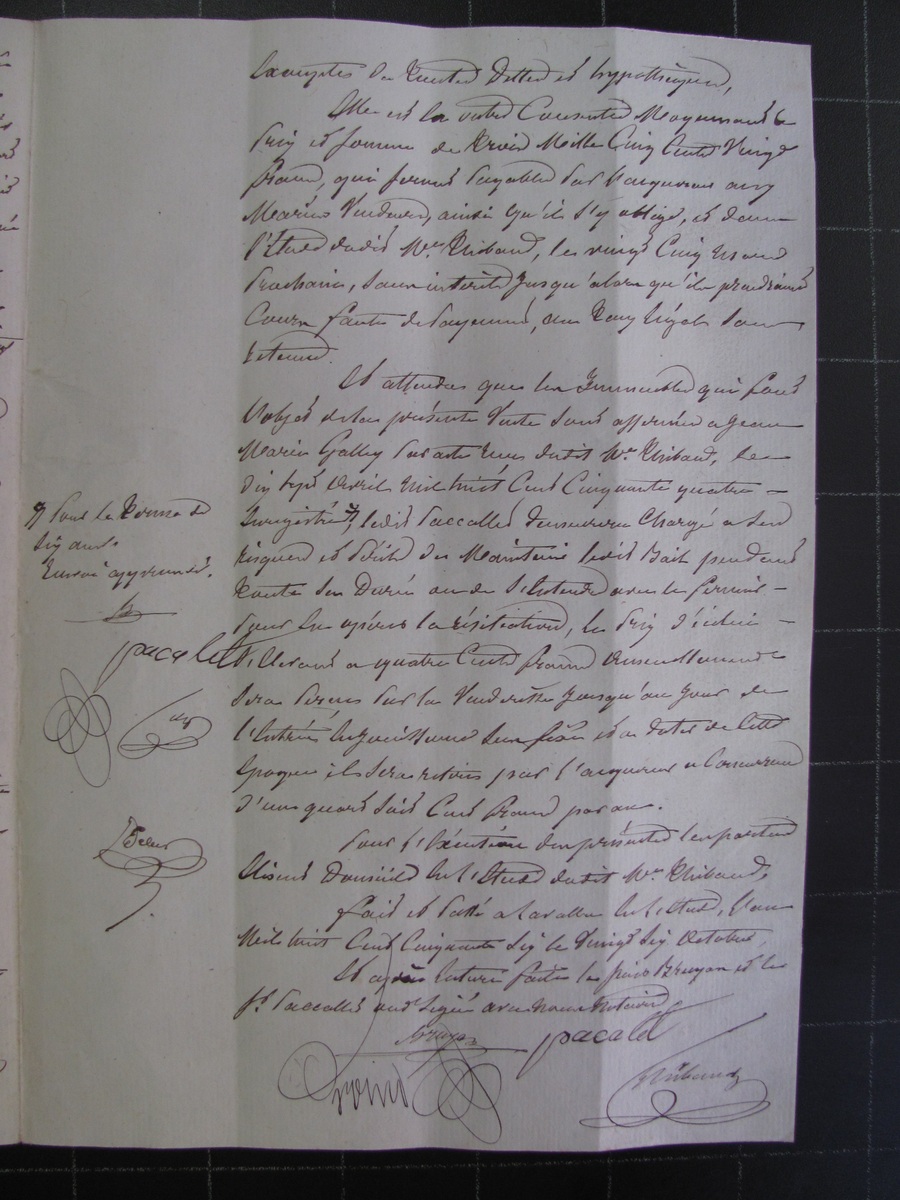 Exemptes de toutes dettes et hypothèques,
Elle est la vente Consentie Moyennant le
prix et somme de trois Mille Cinq Cents Vingt
francs, qui seront payables par l'acquéreur aux
Mariés Vendeurs, ainsi qu'il s'y oblige, et dans
l'Etude dudit Me. Thibaud, le vingt Cinq mars
prochain, sans intérêts jusqu'alors qu'ils prendraient
Cours faute de payement, au taux légal sans
retenue.
Et attendu que les Immeubles qui font
l'objet de la présente Vente sont affermés a Jean
Marie Galley par acte reçu dudit Me. Thibaud, le
dix sept avril mil huit Cent Cinquante quatre
Enregistré, ledit Paccallet demeurera Chargé a ses
risques et périls de Maintenir ledit Bail pendant
toute sa Durée ou de s'entendre avec le fermier
pour en opérer la résiliation, le prix d'icelui
s'élevant a quatre Cents francs annuellement
sera perçu par la Venderesse jusqu'au jour de
l'entrée en jouissance et a dater de Cette
époque il sera retiré par l'acquéreur a Concurrence
d'un quart soit Cent francs par an.
Pour l'Exécution des présentes les parties
élisent Domicile en l'Etude dudit Me. Thibaud.
fait et passé a en l'Etude, l'an
Mil huit Cent Cinquante Six le Vingt Six Octobre,
Et après lecture faite les et les
Paccallet ont signé avec nous Notaires
pour le terme de
six ans.
Renvoi approuvé.
pacalet
pacalet
Thibaud